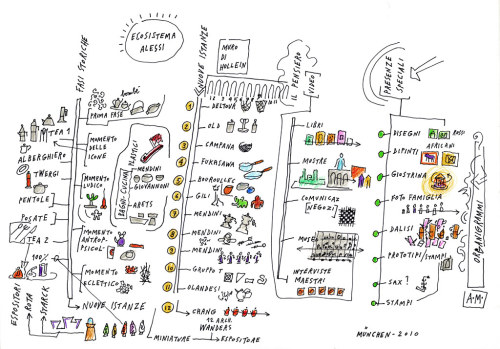 ECOSISTEMA
ALESSI
FASI STORICHE
PRIMA FASE
MOMENTO
DELLE
ICONE
MOMENTO
LUDICO
MOMENTO
ANTROP-
PSICOL.
MOMENTO
ECLETTICO
NUOVE ISTANZE
TEA 1
ALBERGHIERO
TWERGI
PENTOLE
POSATE
TEA 2
100%
ESPOSITORI
ROTA
STARCK
BAGNI-CUCINA
PLASTICI
MENDINI
GIOVANNONI
ARETS
NUOVE ISTANZE
MURO
DI
HOLLEIN
1 DELTON
2 OLD
3 CAMPANA
4 FUKASAWA
5 BOUROULLEC
6 GILI
7 MENDINI
8 MENDINI
9 MENDINI
10 GRUPPO T
11 OLANDESI
12 CHANG
12 ARCH.
WANDERS
MINIATURE
ESPOSITORE
IL PENSIERO
VIDEO
LIBRI
MOSTRE
COMUNICAZ
[NEGOZI]
MUSEO
INTERVISTE
MAESTRI
PRESENZE
SPECIALI
DISEGNI
ROSSI
AFRICANI
DIPINTI
GIOSTRINA
FOTO FAMIGLIA
DALISI
PROTOTIPI/STAMPI
SAX?
STAMPI
ORGANIGRAMMI
A.M.
MÜNCHEN-2010